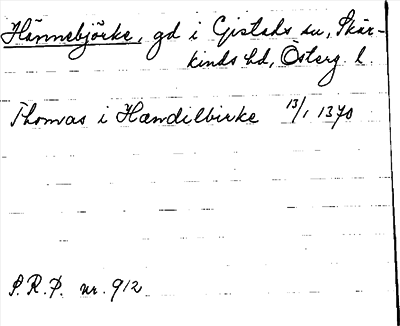 Hännebjörke, gd i Gistads sn, Skär-
kinds hd, Österg. l.
Thomas i Hændilbirke 13/1 1370
S.R.P. nr. 912